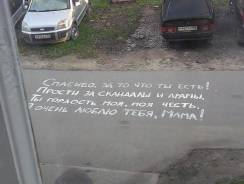 Спасибо, за то что ты есть!
Прости за скандалы и драмы.
Ты гордость моя, моя честь.
Я очень люблю тебя, Мама!